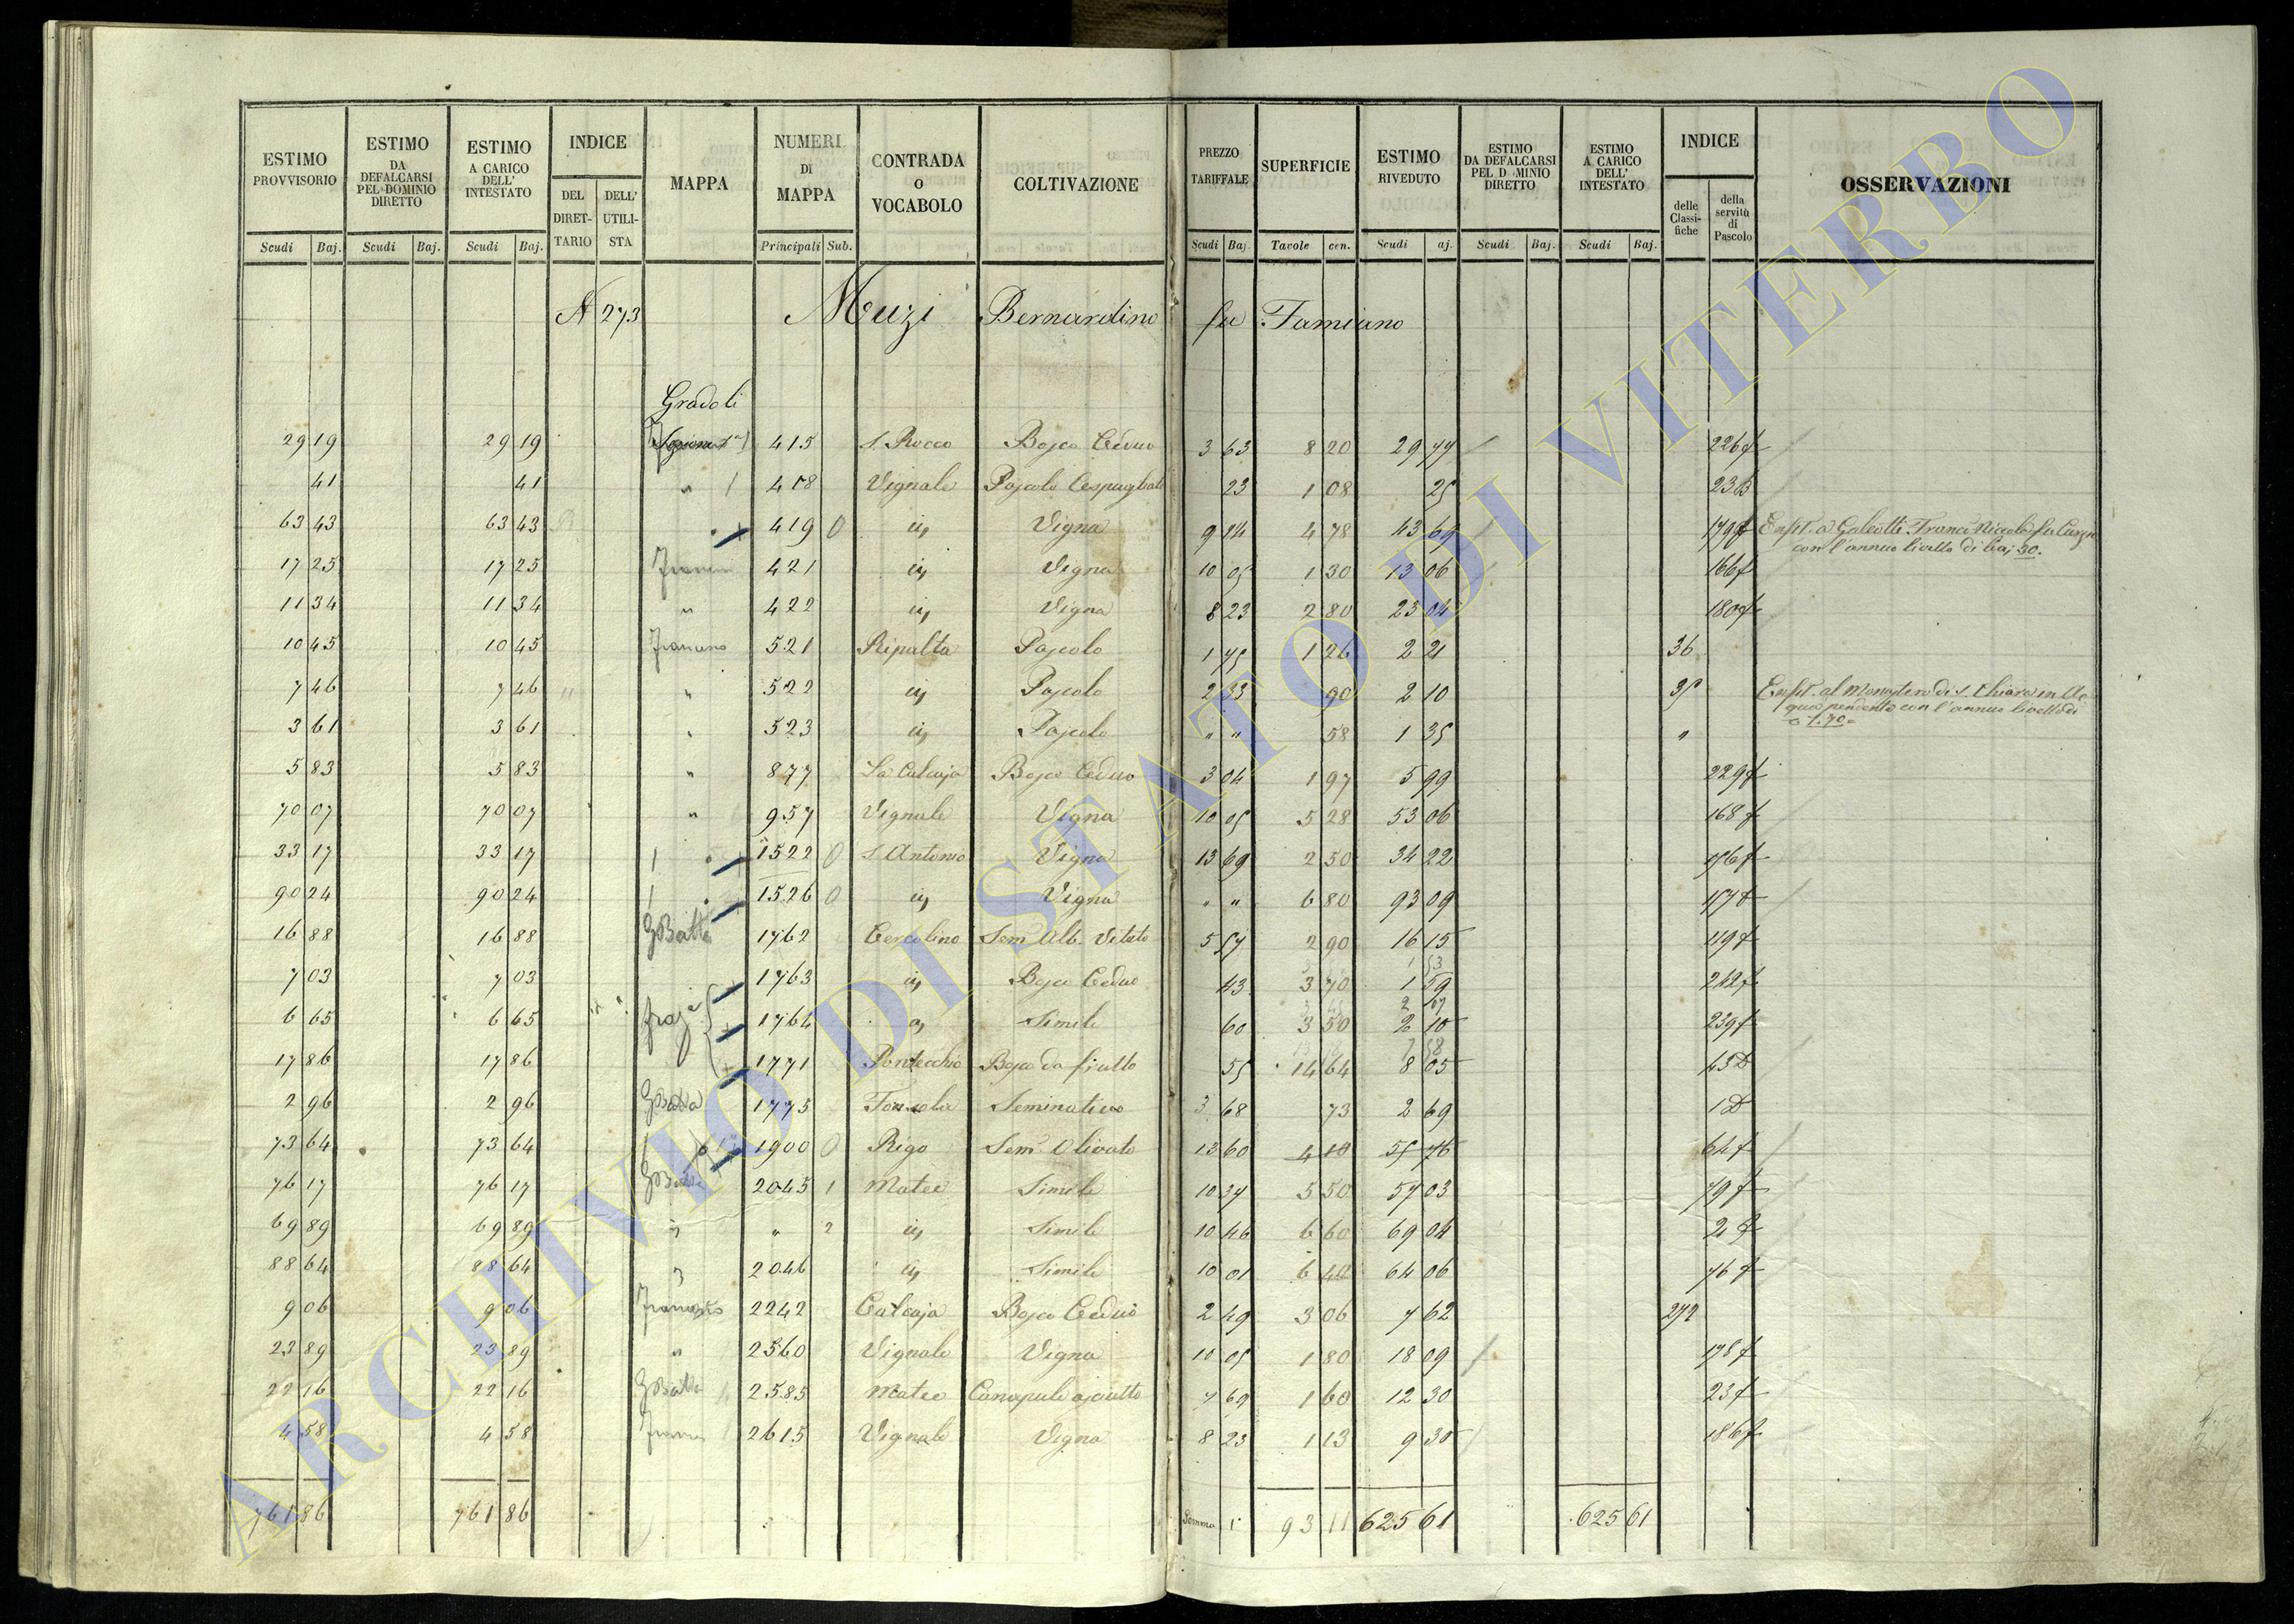 ESTIMO PROVVISORIO | ESTIMO DA DEFALCARSI PEL DOMINIO DIRETTO | ESTIMO A CARICO DELL' INTESTATO | INDICE | MAPPA | NUMERI DI MAPPA | CONTRADA O VOCABOLO | COLTIVAZIONE | PREZZO TARIFFALE | SUPERFICIE | ESTIMO RIVEDUTO | ESTIMO DA DEFALCARSI PEL D MINIO DIRETTO | ESTIMO A CARICO DELL' INTESTATO | INDICE | OSSERVAZIONI
DEL DIRETTARIO | DELL' UTILISTA | delle Classifiche | della servitù di Pascolo
Scudi | Baj. | Scudi | Baj. | Scudi | Baj. | Principali | Sub. | Scudi | Baj | Tavole | cen. | Scudi | aj. | Scudi | Baj. | Scudi | Baj.
N 273 Muzi Bernardino fu Famiano
Gradoli
29 19 | 29 19 | 415 | S. Rocco | Bosco Ceduo | 3 63 | 8 20 | 29 77 | 226 f
41 | 41 | " | 418 | Vignale | Pascolo Cespugliat | 23 | 1 08 | 25 | 23 B
63 43 | 63 43 | 419 0 | id | Vigna | 9 14 | 4 78 | 43 69 | 179 f | Enfit. a Galeotti Franc. Niccola fu
con l'annuo livello di baj 30.
17 25 | 17 25 | 421 | id | Vigna | 10 05 | 1 30 | 13 06 | 166 f
11 34 | 11 34 | " | 422 | id | Vigna | 8 23 | 2 80 | 23 04 | 180 f
10 45 | 10 45 | 521 | Ripalta | Pascolo | 1 75 | 1 26 | 2 21 | 36
7 46 | 7 46 | " | 522 | id | Pascolo | 2 33 | 90 | 2 10 | 35 | Enfit. al Monastero di S. Chiara in Ac
quapendente con l'annuo livello di
1.70
3 61 | 3 61 | 523 | id | Pascolo | " " | 58 | 1 35 | "
5 83 | 5 83 | " | 877 | La Calcaja | Bosco Ceduo | 3 04 | 1 97 | 5 99 | 229 f
70 07 | 70 07 | " | 957 | Vignale | Vigna | 10 05 | 5 28 | 53 06 | 168 f
33 17 | 33 17 | 1522 0 | S. Antonio | Vigna | 13 69 | 2 50 | 34 22 | 156 f
90 24 | 90 24 | 1526 0 | id | Vigna | " " | 6 80 | 93 09 | 157 f
16 88 | 16 88 | GBatta | 1762 | Cercolino | Sem Alb. Vitato | 5 57 | 2 90 | 16 15 | 119 f
7 03 | 7 03 | 1763 | id | Bosco Ceduo | 43 | 3 70 | 1 59 | 242 f
6 65 | 6 65 | 1764 | id | Simile | 60 | 3 50 | 2 10 | 239 f
17 86 | 17 86 | 1771 | Pontecchio | Bosco da frutto | 55 | 14 64 | 8 05 | 43 D
2 96 | 2 96 | GBatta | 1775 | Seminativo | 3 68 | 73 | 2 69 | 1 D
73 64 | 73 64 | 1900 0 | Rigo | Sem. Olivato | 13 60 | 4 10 | 55 76 | 64 f
76 17 | 76 17 | GBatta | 2045 1 | Matee | Simile | 10 37 | 5 50 | 57 03 | 79 f
69 89 | 69 89 | " | " 2 | id | Simile | 10 46 | 6 60 | 69 04 | 2 f
88 64 | 88 64 | " | 2046 | id | Simile | 10 01 | 6 40 | 64 06 | 76 f
9 06 | 9 06 | 2242 | Calcaja | Bosco Ceduo | 2 49 | 3 06 | 7 62 | 272
23 89 | 23 89 | " | 2560 | Vignale | Vigna | 10 05 | 1 80 | 18 09 | 178 f
22 16 | 22 16 | GBatta | 2585 | Matee | Canapule asciutto | 7 69 | 1 60 | 12 30 | 23 f
4 58 | 4 58 | 2615 | Vignale | Vigna | 8 23 | 1 13 | 9 30 | 186 f
761 86 | 761 86 | Somma | 93 11 | 625 61 | 625 61
ARCHIVIO DI STATO DI VITERBO